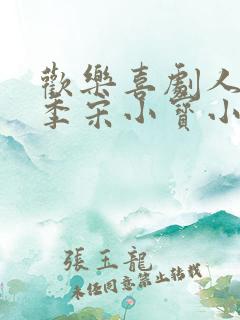 歡樂喜劇人
季宋小寶小
張玉龍
未經同意禁止轉載